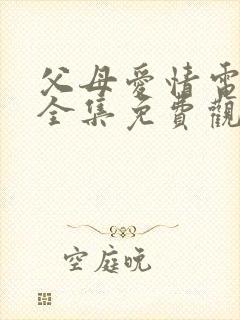 父母愛情電
全集免費觀
空庭晚